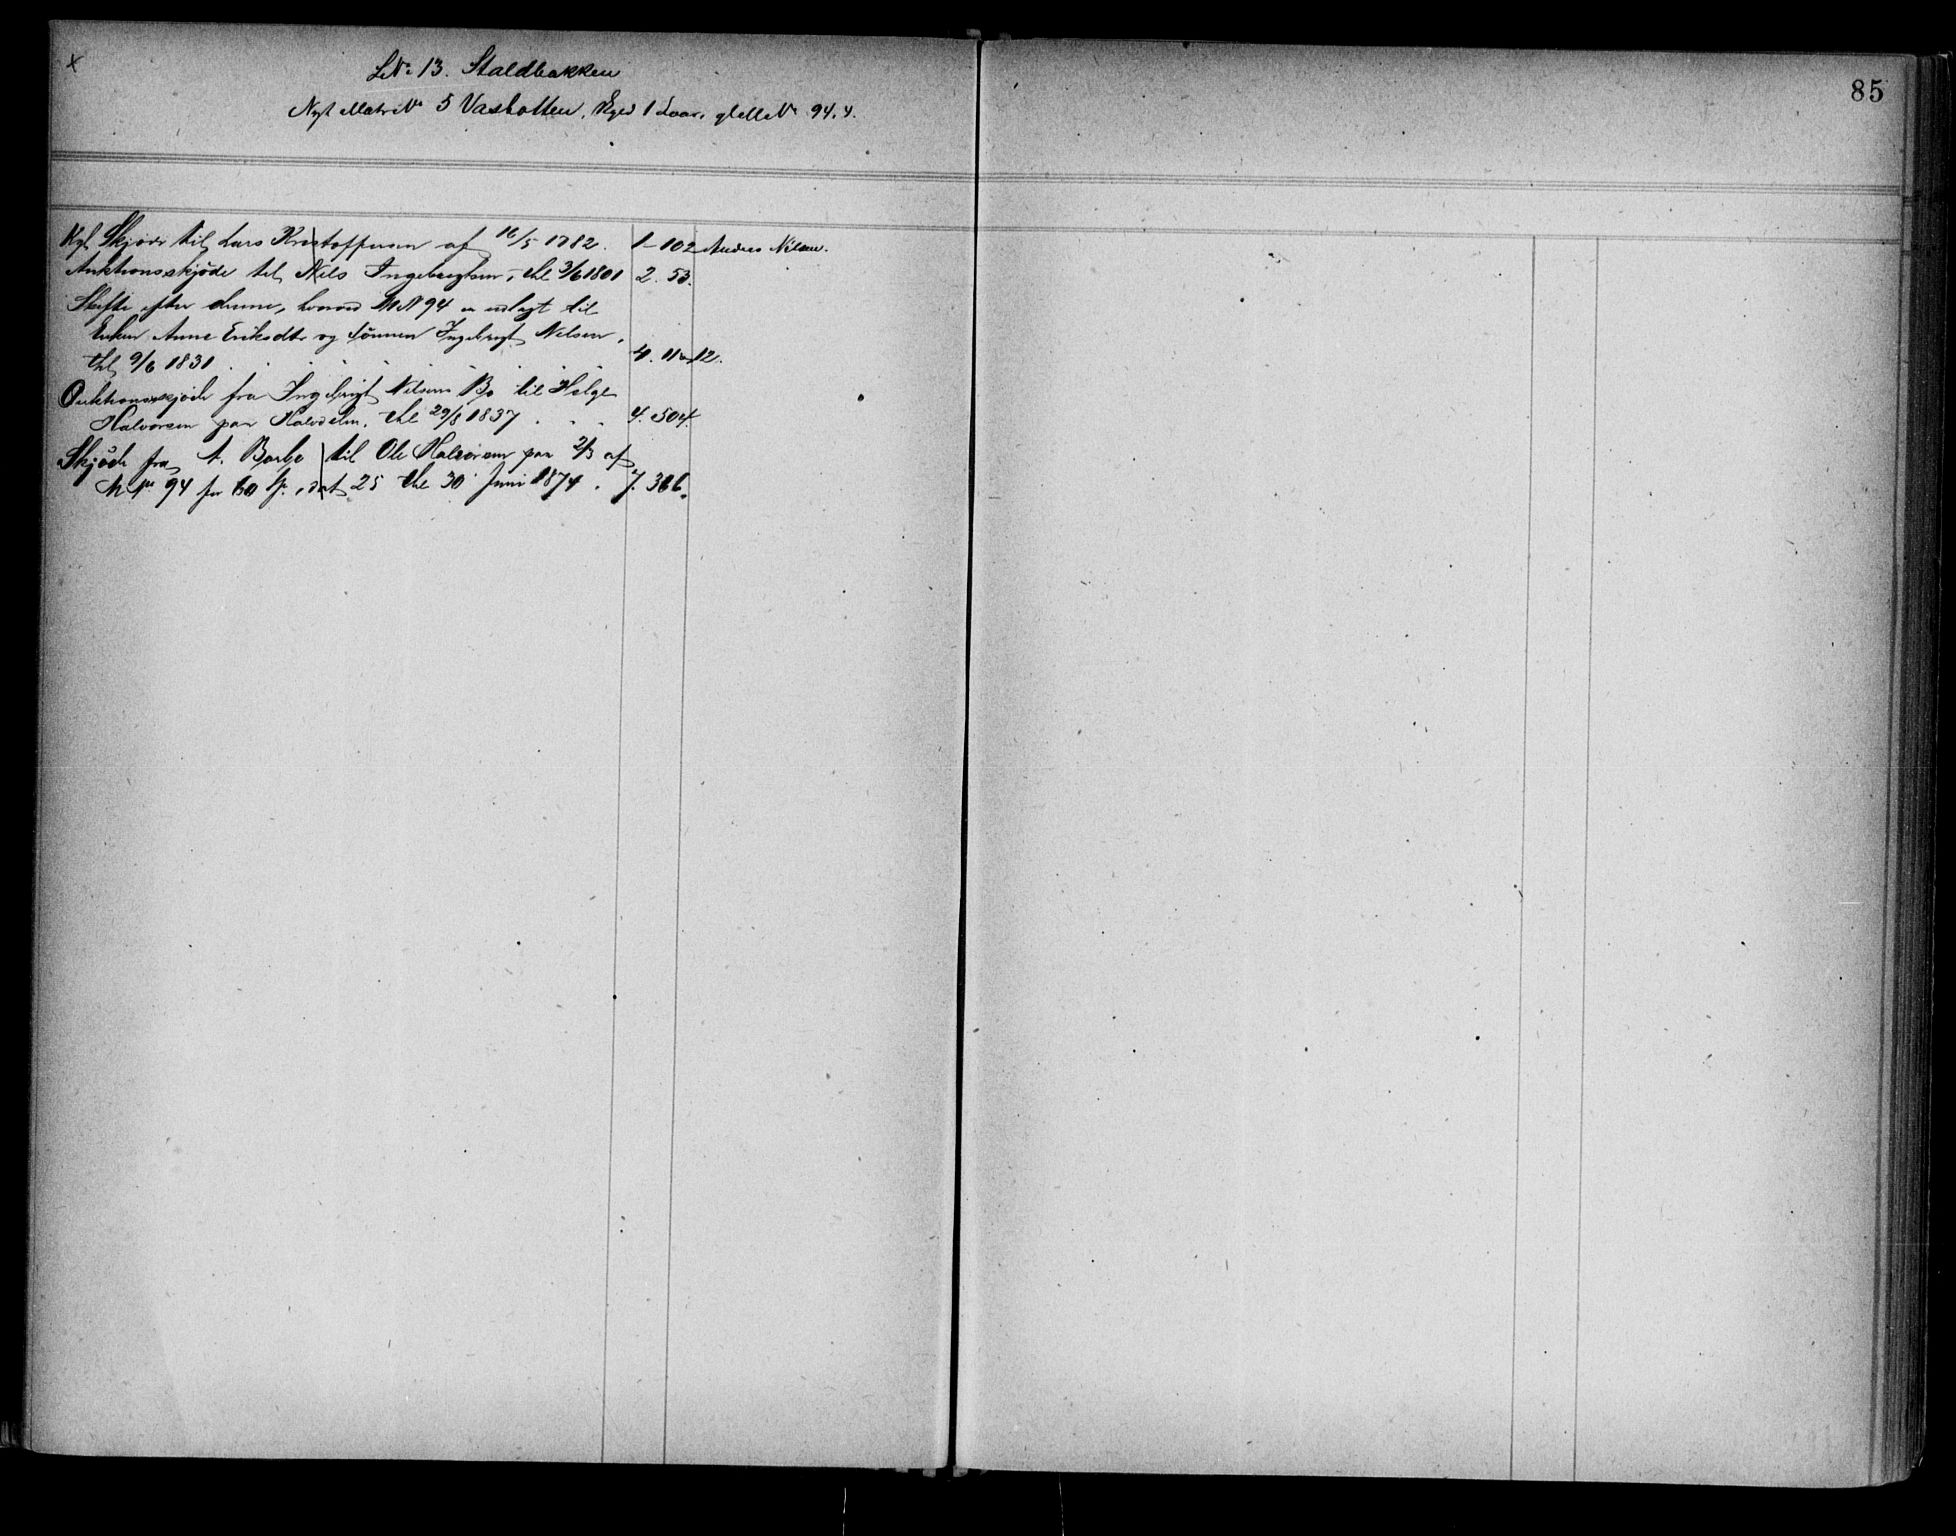 x
LNo 13. Staldbakken
85
Nyt Matr No 5 Vasbotten, Skyld 1 Daar. gl MNo 94.4.
Kgl. Skjøde til Lars Kristoffersen af 16/5 1782. 1-102 Anders Nilsen.
Auktionsskjøde til Nils Ingebregtsen, thl 3/6 1801 2. 53.
Skifte efter denne, hvorved MN 94 er udlagt til
Enken Anne Eriksdtr og Sønnen Ingebrigt Nilsen,
thl 9/6 1831. 4. 11 12.
Auktionsskjøde fra Ingebrigt Nilsen Bo til Helge
Halvorsen paa Halvdelen. thl 29/8 1837 . . . 4. 504.
Skjøde fra A. Barbo til Ole Halvorsen paa 2/3 af
M No 94 for 60 Sp. dat 25 thl 30 Juni 1874 . 7. 366.